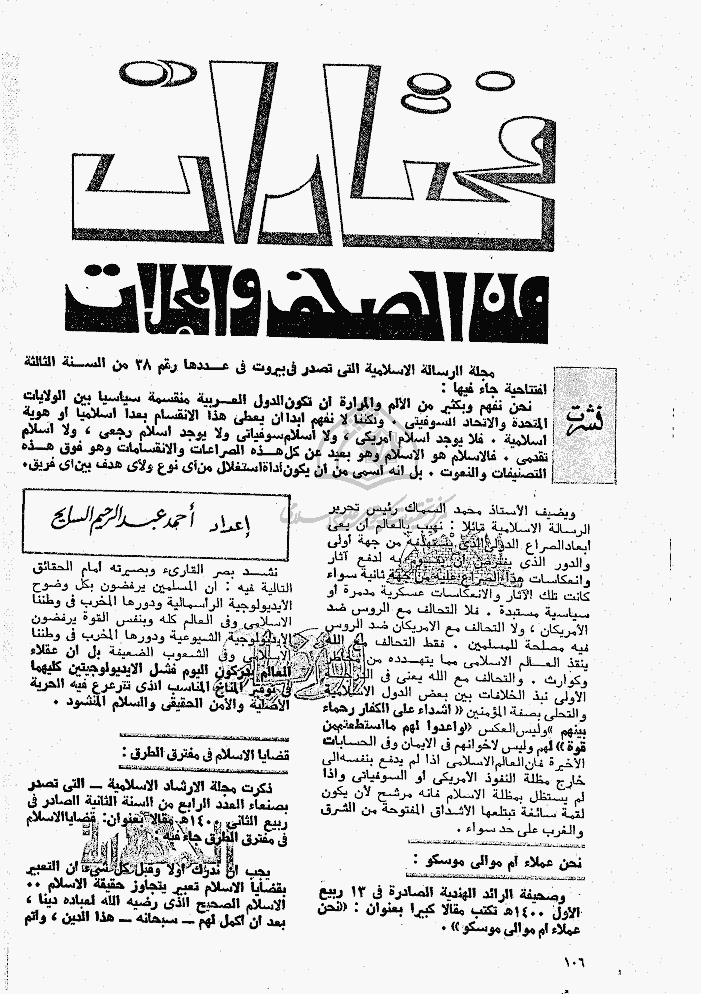 مختارات
من الصحف والمجلات
نشرت
مجلة الرسالة الاسلامية التى تصدر فى بيروت فى عددها رقم ٣٨ من السنة الثالثة
افتتاحية جاء فيها :
نحن نفهم وبكثير من الألم والمرارة ان تكون الدول العربية منقسمة سياسيا بين الولايات
المتحدة والاتحاد السوفيتى . ولكننا لا نفهم ابدا ان يعطى هذا الانقسام بعدا اسلاميا او هوية
اسلامية . فلا يوجد اسلام امريكى ، ولا اسلام سوفياتى ولا يوجد اسلام رجعى ، ولا اسلام
تقدمى . فالاسلام هو الاسلام وهو بعيد عن كل هذه الصراعات والانقسامات وهو فوق هذه
التصنيفات والنعوت . بل انه اسمى من ان يكون أداة استغلال من أى نوع ولأى هدف بين أى فريق.
ويضيف الاستاذ محمد السماك رئيس تحرير
الرسالة الاسلامية قائلا : نهيب بالعالم ان يعى
ابعاد الصراع الدولى الذى يستهدفه من جهة أولى
والدور الذى يفترض ان يقوم به لدفع آثار
وانعكاسات هذا الصراع عليه من جهة ثانية سواء
كانت تلك الآثار والانعكاسات عسكرية مدمرة او
سياسية مستبدة . فلا التحالف مع الروس ضد
الأمريكان ، ولا التحالف مع الامريكان ضد الروس
فيه مصلحة للمسلمين . فقط التحالف مع الله
ينقذ العالم الاسلامى مما يتهدده من أخطار
وكوارث . والتحالف مع الله يعنى فى الدرجة
الأولى نبذ الخلافات بين بعض الدول الاسلامية
والتحلى بصفة المؤمنين « اشداء على الكفار رحماء
بينهم » وليس العكس « واعدوا لهم ما استطعتم من
قوة » لهم وليس لاخوانهم فى الايمان وفى الحسابات
الأخيرة فان العالم الاسلامى اذا لم يدفع بنفسه الى
خارج مظلة النفوذ الأمريكى او السوفياتى واذا
لم يستظل بمظلة الاسلام فانه مرشح لأن يكون
لقمة سائغة تبتلعها الأشداق المفتوحة من الشرق
والغرب على حد سواء .
نحن عملاء ام موالى موسكو :
وصحيفة الرائد الهندية الصادرة فى ١٣ ربيع
الأول ١٤٠٠هـ تكتب مقالا كبيرا بعنوان : « نحن
عملاء ام موالى موسكو » .
إعداد أحمد عبد الرحيم السايح
نشد بصر القارىء وبصيرته أمام الحقائق
التالية فيه : ان المسلمين يرفضون بكل وضوح
الايديولوجية الرأسمالية ودورها المخرب فى وطننا
الاسلامى وفى العالم كله وبنفس القوة يرفضون
الايديولوجية الشيوعية ودورها المخرب فى وطننا
الاسلامى وفى الشعوب الضعيفة بل ان عقلاء
العالم يدركون اليوم فشل الايديولوجيتين كليهما
فى توفير المناخ المناسب الذى تترعرع فيه الحرية
الأصلية والأمن الحقيقى والسلام المنشود .
قضايا الاسلام فى مفترق الطرق :
ذكرت مجلة الارشاد الاسلامية — التى تصدر
بصنعاء العدد الرابع من السنة الثانية الصادر فى
ربيع الثانى ١٤٠٠هـ مقالا بعنوان: قضايا الاسلام
فى مفترق الطرق جاء فيه :
يجب ان ندرك أولا وقبل كل شىء ان التعبير
بقضايا الاسلام تعبير يتجاوز حقيقة الاسلام ..
الاسلام الصحيح الذى رضيه الله لعباده دينا ،
بعد ان أكمل لهم — سبحانه — هذا الدين ، وأتم
١٠٦